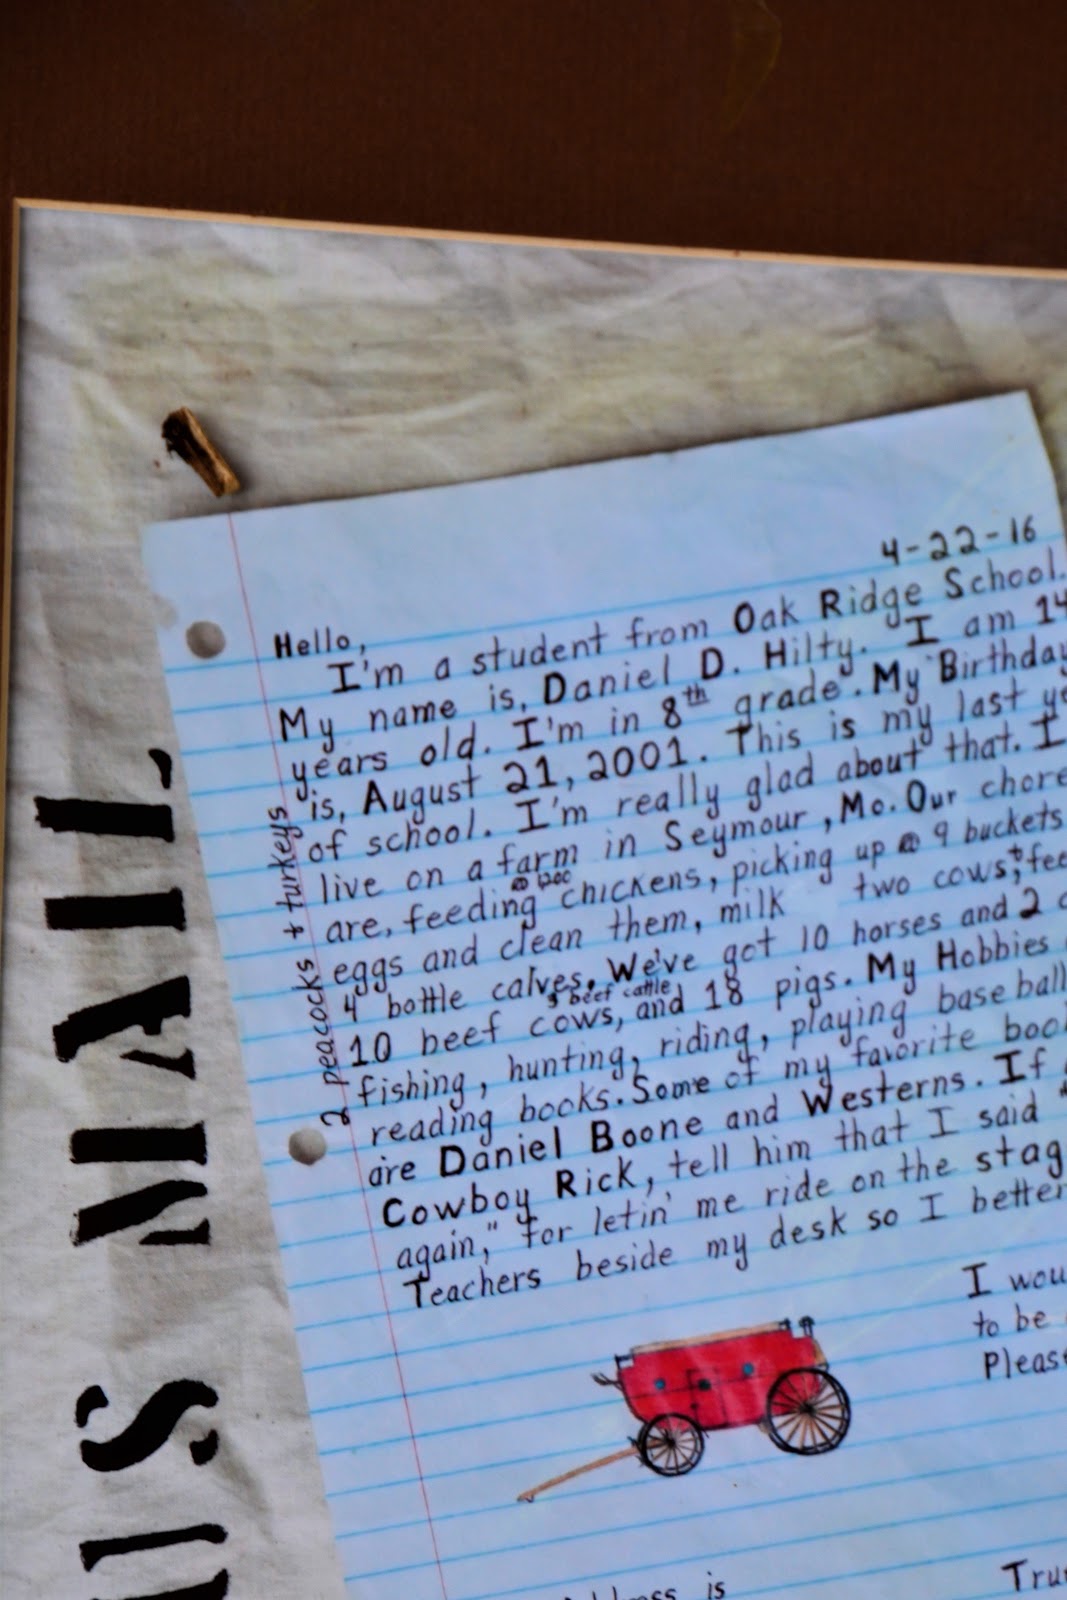 4-22-16
Hello,
I'm a student from Oak Ridge School.
My name is, Daniel D. Hilty. I am 14
years old. I'm in 8th grade. My Birthday
is, August 21, 2001. This is my last
of school. I'm really glad about that. I
live on a farm in Seymour, Mo. Our
are, feeding @ 1200 chickens, picking up @ 9 buckets
eggs and clean them, milk two cows, +
4 bottle calves. We've got 10 horses and 2
10 beef cows, 3 beef cattle, and 18 pigs. My Hobbies
fishing, hunting, riding, playing baseball
reading books. Some of my favorite
are Daniel Boone and Westerns. If
Cowboy Rick, tell him that I said
again," for letin' me ride on the
Teachers beside my desk so I better
2 peacocks + turkeys
I
to be
is
US MAIL